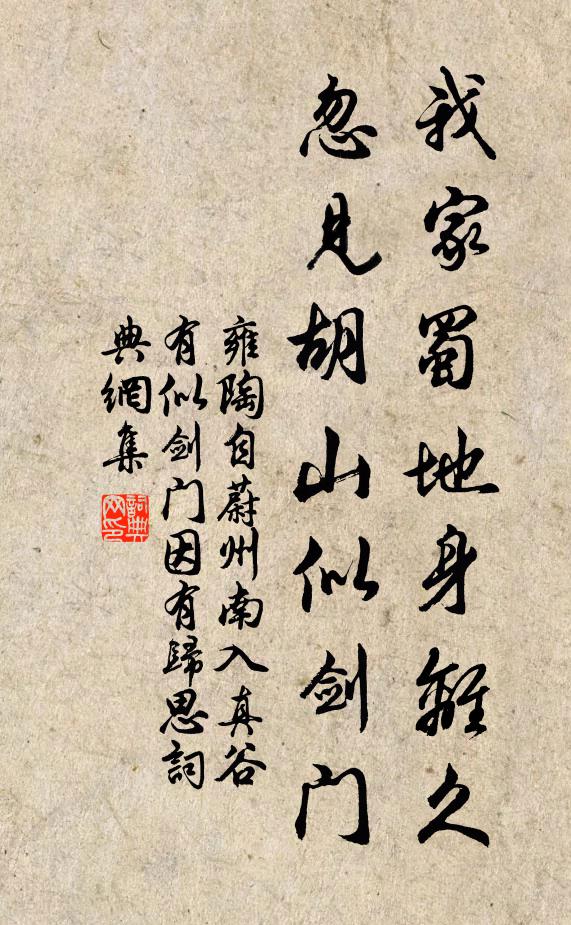 我家蜀地身離久
忽見胡山似剑门
雍陶自蔚州南入真谷
有似剑门因有歸思詞
典網集
詞典
网印